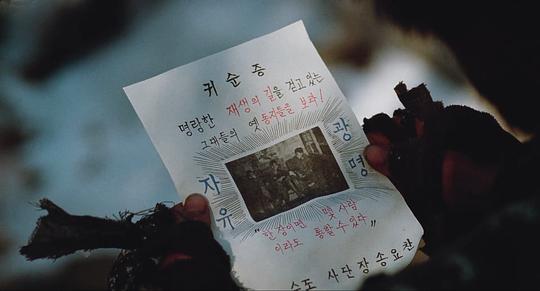 귀순증
명랑한 재생의 길을 걷고있는
그대들의 옛 동지들을 보라!
자유
광명
"한 장이면 몇 사람
이라도 통할 수 있다"
사단장 송요찬